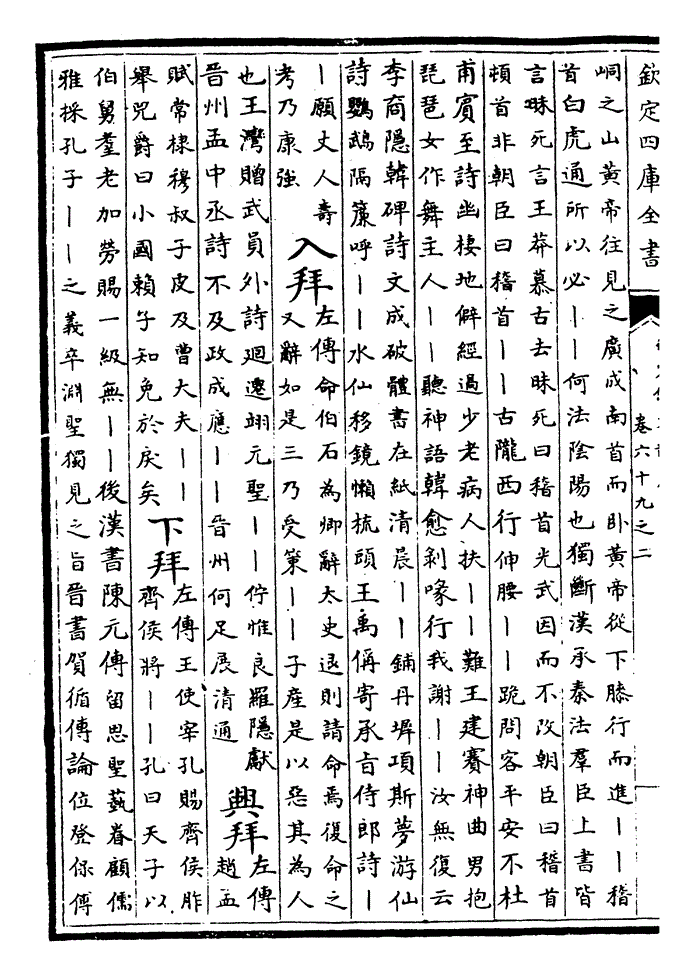 欽定四庫全書
卷六十九之二
峒之山黃帝往見之廣成南首而卧黃帝從下膝行而進丨丨稽
首白虎通所以必丨丨何法陰陽也獨斷漢承秦法羣臣上書皆
言昧死言王莽慕古去昧死曰稽首光武因而不改朝臣曰稽首
頓首非朝臣曰稽首丨丨古隴西行伸腰丨丨跪問客平安不杜
甫賓至詩幽棲地僻經過少老病人扶丨丨難王建賽神曲男抱
琵琶女作舞主人丨丨聽神語韓愈剝啄行我謝丨丨汝無復云
李商隱韓碑詩文成破體書在紙清晨丨丨鋪丹墀項斯夢游仙
詩鸚鵡隔簾呼丨丨水仙移鏡懶梳頭王禹偁寄承旨侍郎詩丨
丨願丈人壽
考乃康強
入拜
左傳命伯石為卿辭太史退則請命焉復命之
又辭如是三乃受策丨丨子產是以惡其為人
也王灣贈武員外詩廻遷翊元聖丨丨佇惟良羅隱獻
晉州孟中丞詩不及政成應丨丨晉州何足展清通
興拜
左傳
趙孟
賦常棣穆叔子皮及曹大夫丨丨
舉兕爵曰小國賴子知免於戾矣
下拜
左傳王使宰孔賜齊侯胙
齊侯將丨丨孔曰天子以
伯舅耋老加勞賜一級無丨丨後漢書陳元傳留思聖藝眷顧儒
雅採孔子丨丨之義卒淵聖獨見之旨晉書賀循傳論位登保傅